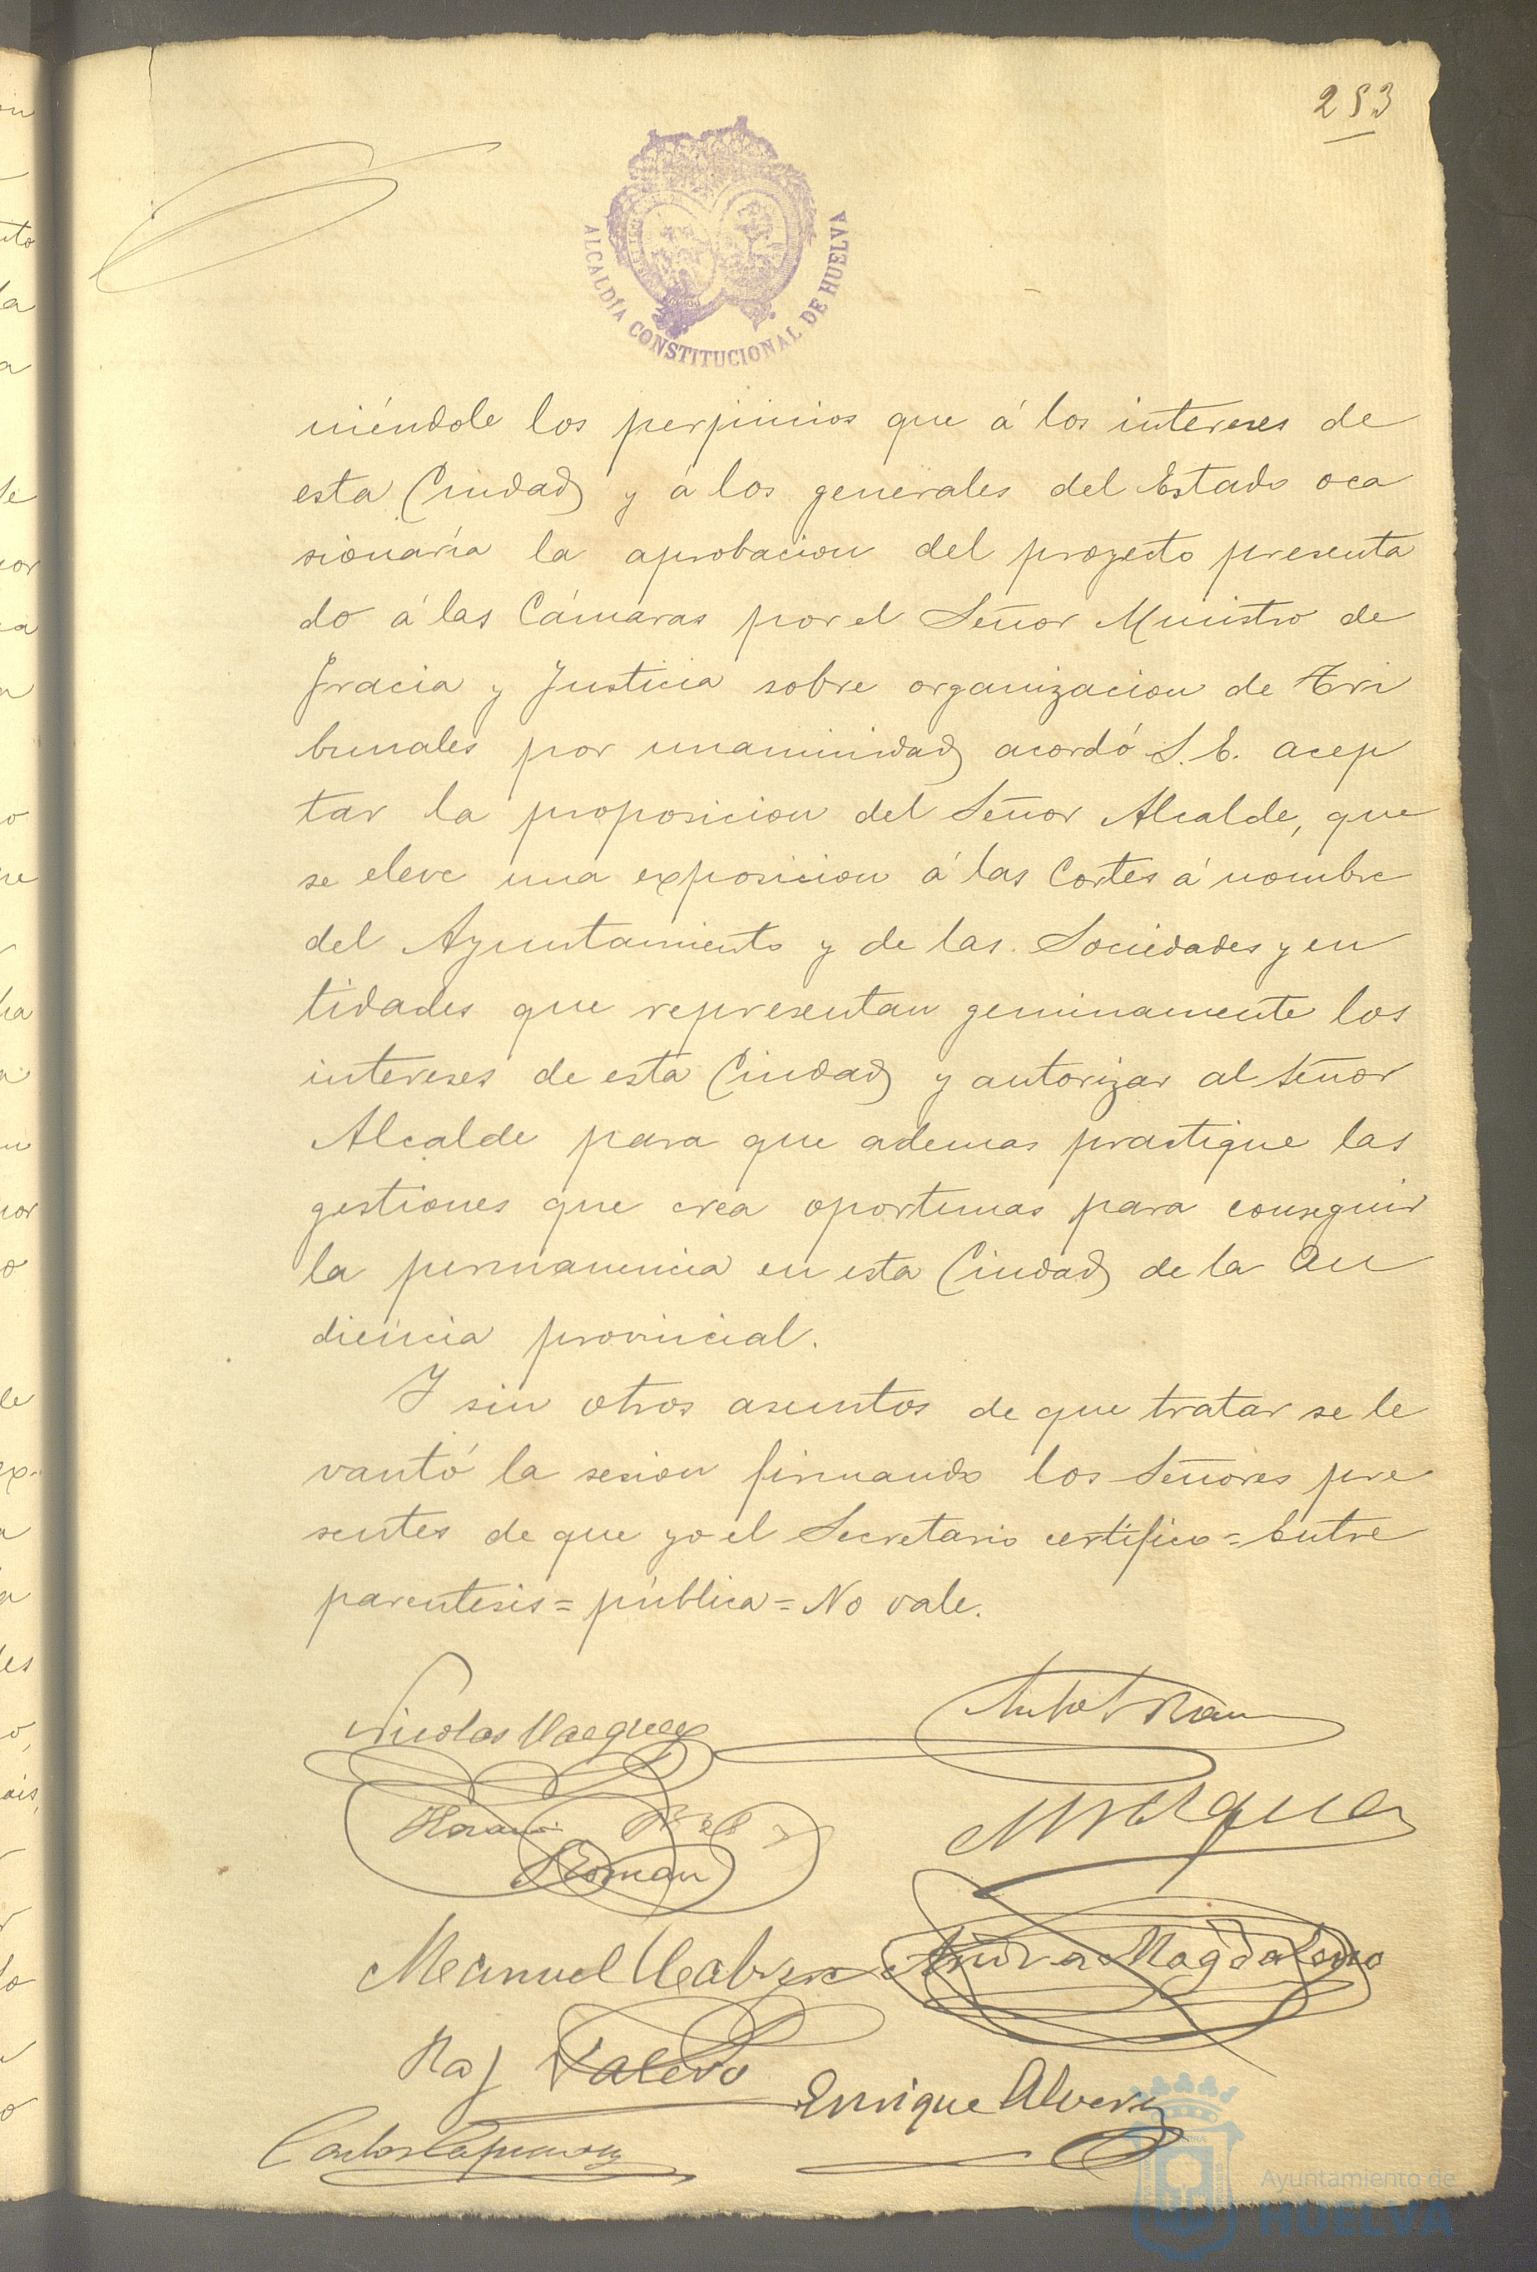 253
ALCALDÍA CONSTITUCIONAL DE HUELVA
niéndole los perjuicios que á los intereses de
esta Ciudad y á los generales del Estado oca
sionaría la aprobacion del proyecto presenta
do á las Cámaras por el Señor Ministro de
Gracia y Justicia sobre organizacion de Tri
bunales por unaminidad acordó S.E. acep
tar la proposicion del Señor Alcalde, que
se eleve una exposicion á las Cortes á nombre
del Ayuntamiento y de las Sociedades y en
tidades que representan genuinamente los
intereses de esta Ciudad y autorizar al Señor
Alcalde para que ademas practique las
gestiones que crea oportunas para conseguir
la permanencia en esta Ciudad de la Au
diencia provincial.
Y sin otros asuntos de que tratar se le
vantó la sesion firmando los Señores pre
sentes de que yo el Secretario certifico = Entre
parentesis = pública = No vale.
Nicolas Vazquez
M Vazquez
Roman
Manuel Andres Magdaleno
Raf Valero
Enrique Alvarez
Carlos
Ayuntamiento de
HUELVA